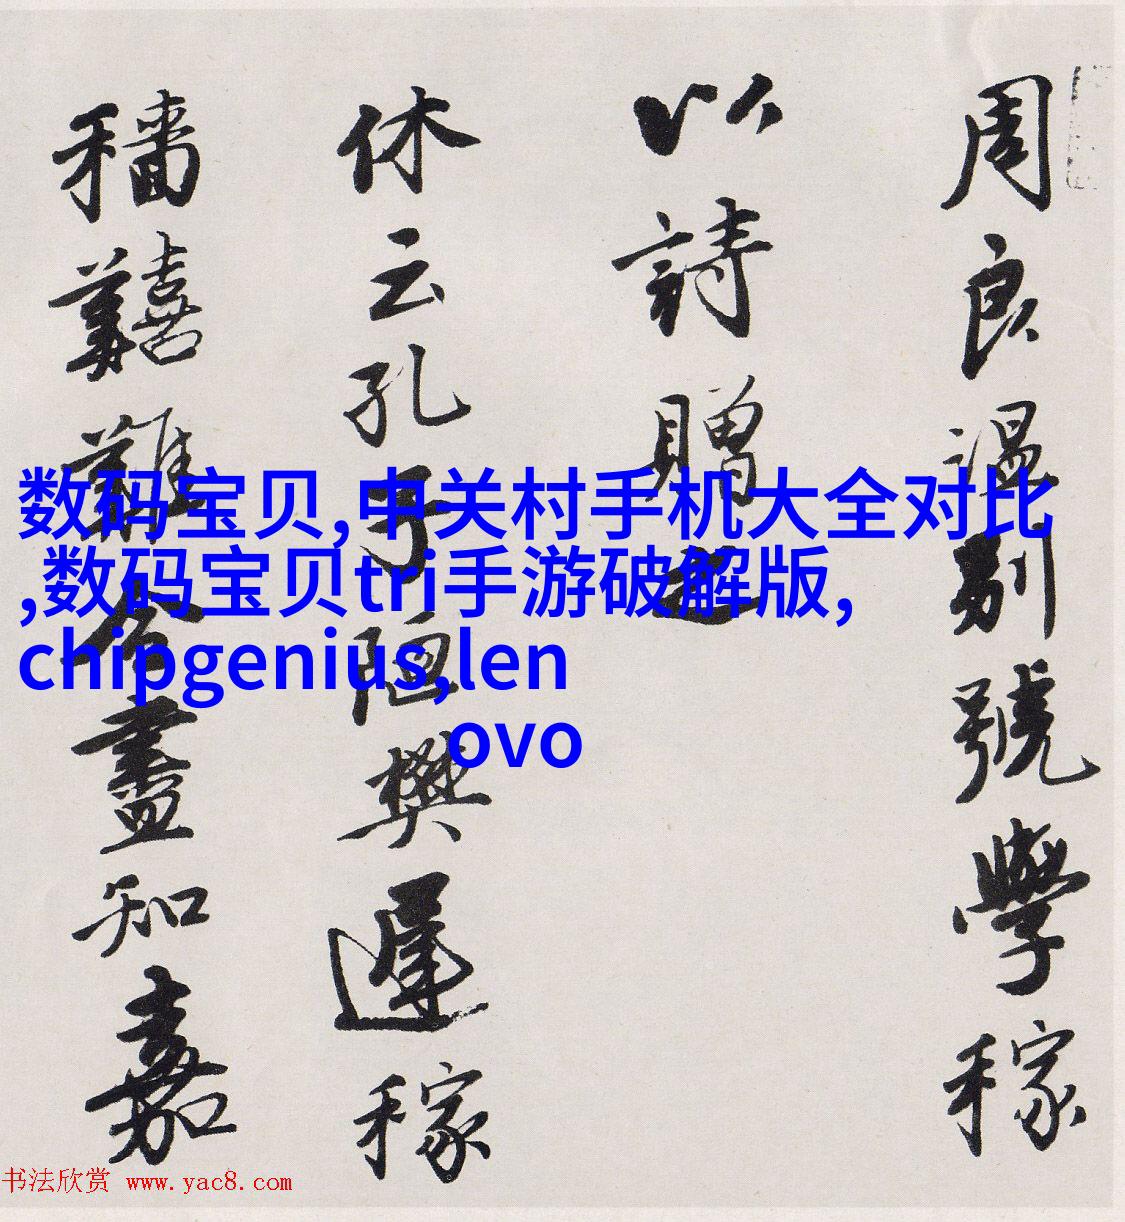 周良温别號學稼
以詩贈之
休云孔子陋樊遲稼
穡囏難今盡知嘉
数码宝贝,中关村手机大全对比
,数码宝贝tri手游破解版,
chipgenius,len
ovo
书法欣赏 www.yac8.com